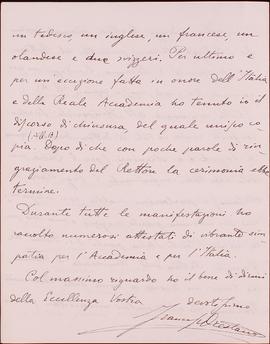 un tedesco, un inglese, un francese, un
olandese e due svizzeri. Per ultimo e
per un'eccezione fatta in onore dell'Italia
e della Reale Accademia ho tenuto io il
discorso di chiusura, del quale unisco co-
(All. B)
pia. Dopo di che con poche parole di rin-
graziamento del Rettore la cerimonia ebbe
termine.
Durante tutte le manifestazioni ho
raccolto numerosi attestati di vibrante sim-
patia per l'Accademia e per l'Italia.
Col massimo riguardo ho il bene di dirmi
della Eccellenza Vostra
devotissimo